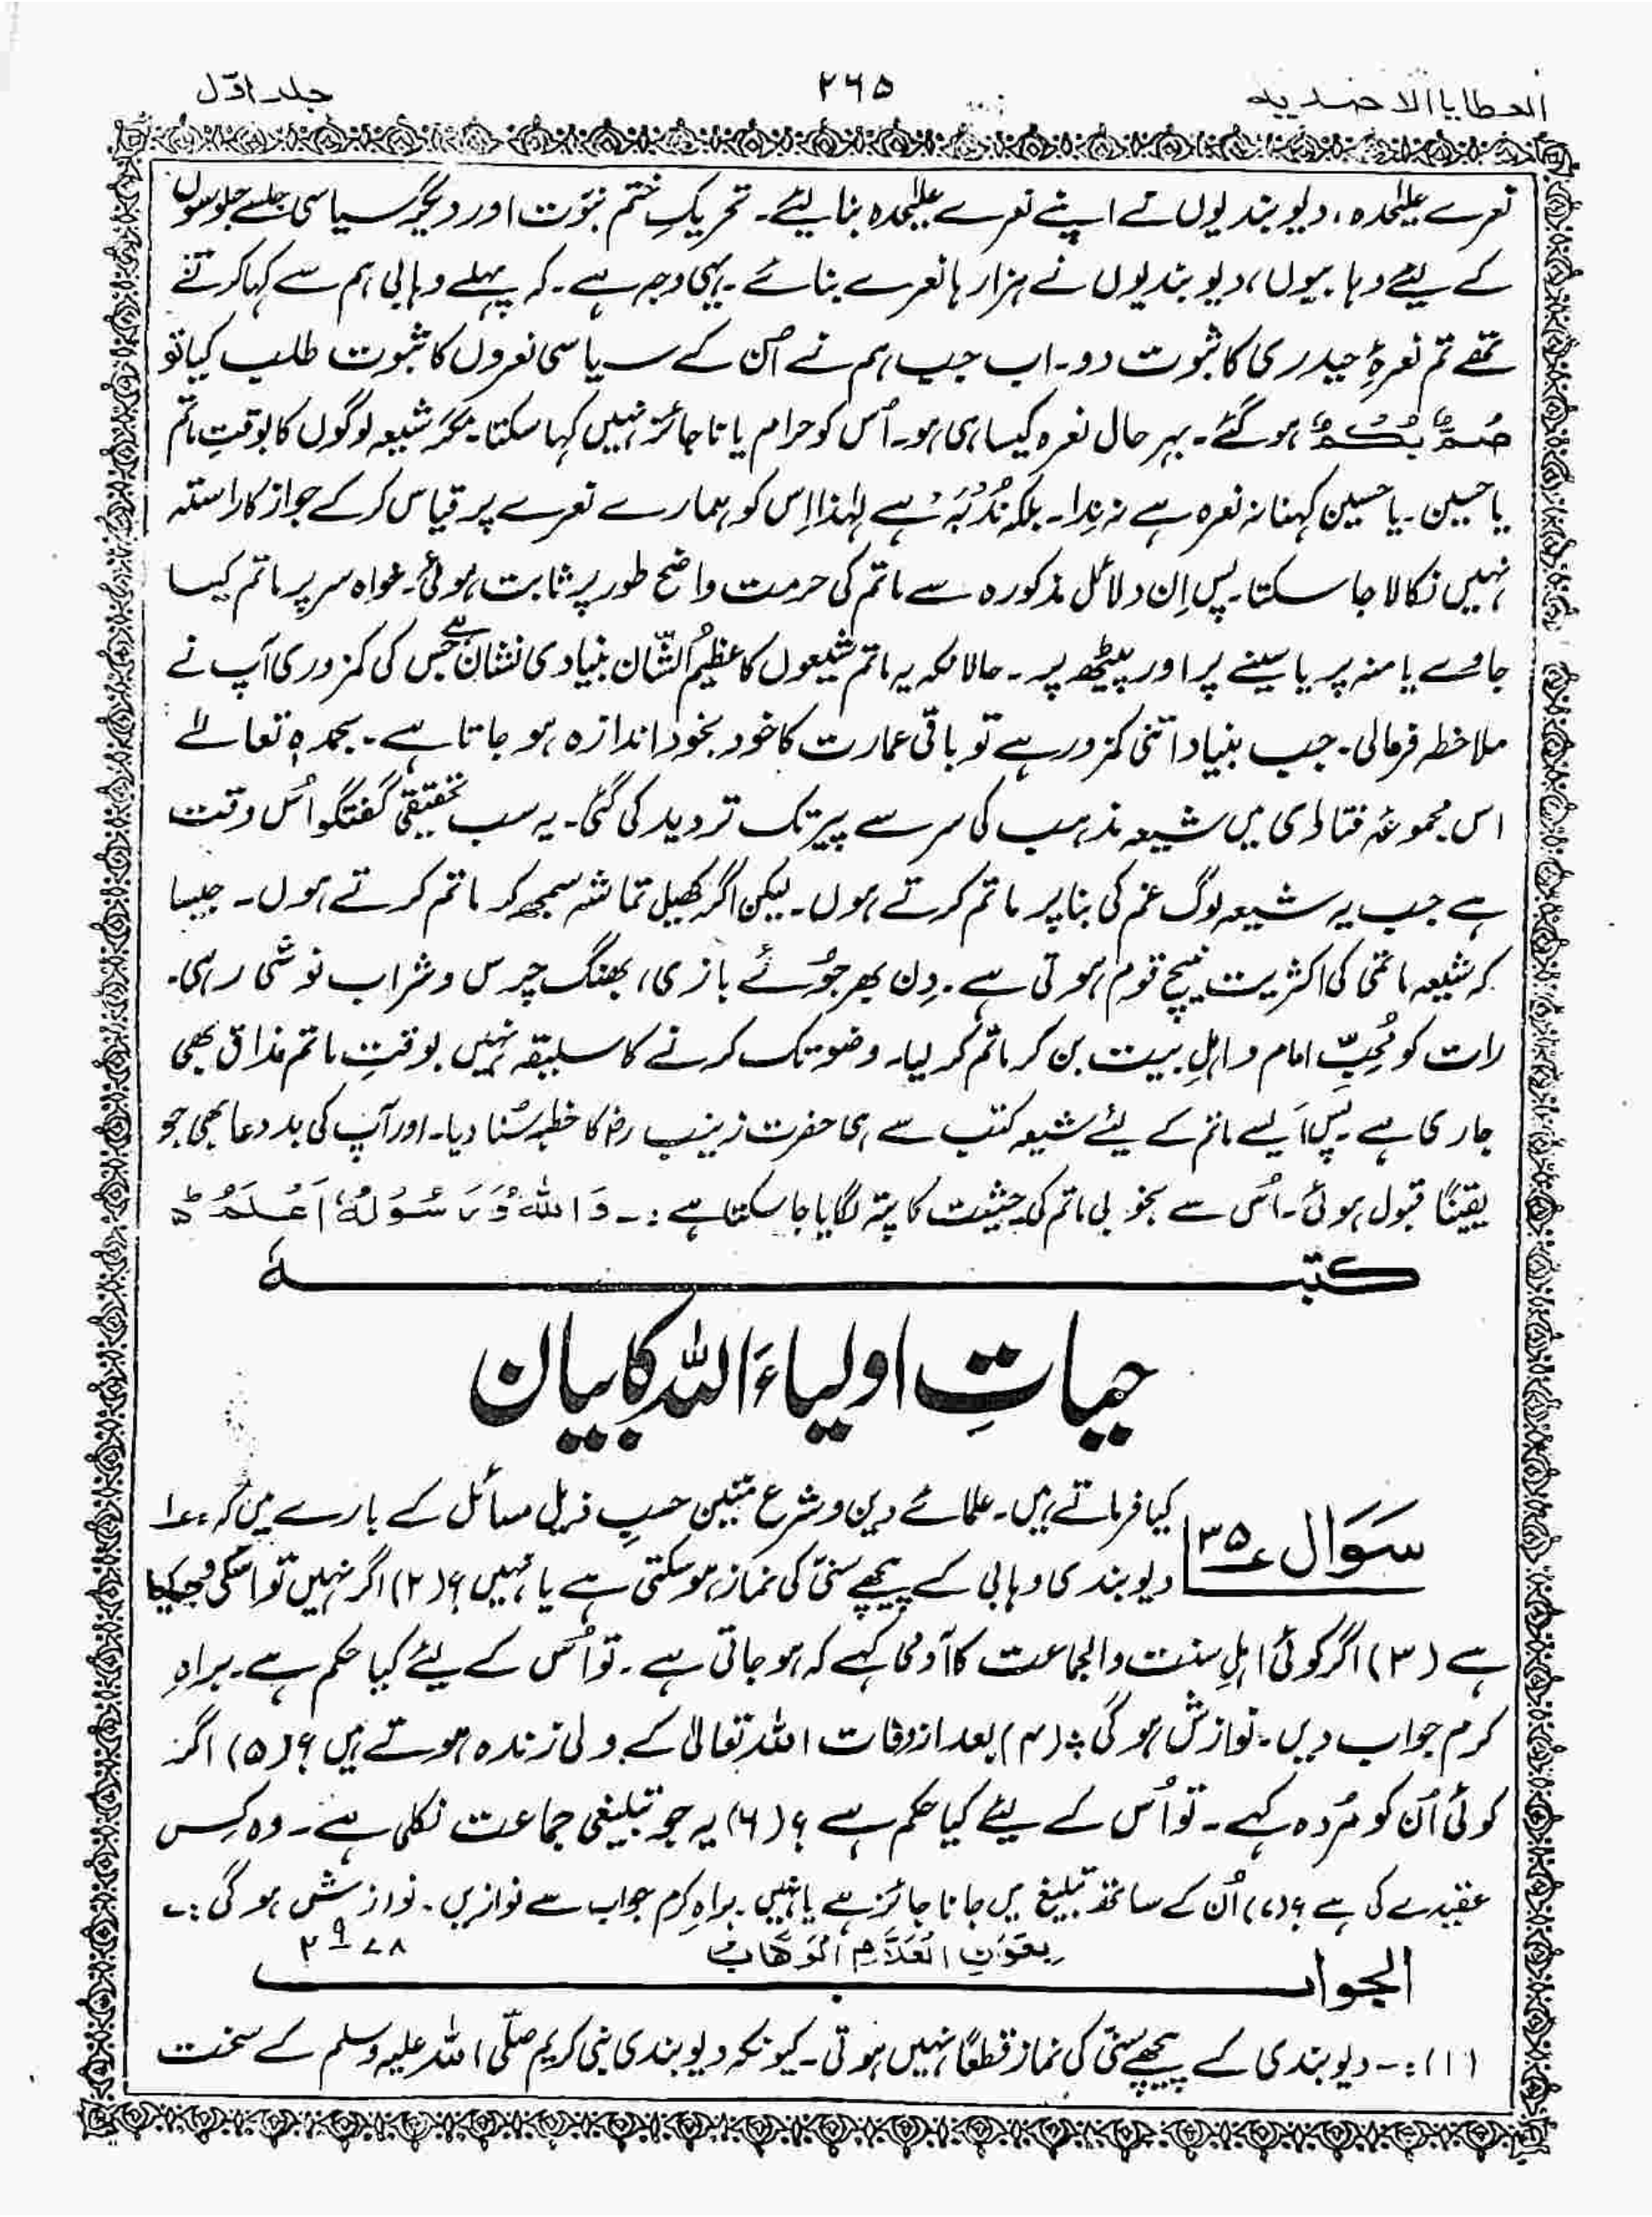 العطایا الاحمدیه ۲۶۵ جلد اوّل
نعرے علیٰحدہ، دیوبندیوں نے اپنے نعرے علیٰحدہ بنا لیئے۔ تحریکِ ختم نبوّت اور دیگر سیاسی جلسے جلوسوں
کے لیئے وہابیوں، دیوبندیوں نے ہزارہا نعرے بنائے۔ یہی وجہ ہے۔ کہ پہلے وہابی ہم سے کہا کرتے
تھے تم نعرۂ حیدری کا ثبوت دو۔ اب جب ہم نے اُن کے سیاسی نعروں کا ثبوت طلب کیا تو
صُمٌّ بُکْمٌ ہو گئے۔ بہر حال نعرہ کیسا ہی ہو۔ اُس کو حرام یا ناجائز نہیں کہا سکتا۔ مگر شیعہ لوگوں کا بوقتِ ماتم
یا حسین۔ یا حسین کہنا نہ نعرہ ہے نہ ندا۔ بلکہ نُدْبَہْ ہے لہٰذا اِس کو ہمارے نعرے پر قیاس کر کے جواز کا راستہ
نہیں نکالا جا سکتا۔ پس اِن دلائل مذکورہ سے ماتم کی حرمت واضح طور پر ثابت ہوئی۔ خواہ سر پر ماتم کیا
جاوے یا منہ پر یا سینے پر اور پیٹھ پر۔ حالانکہ یہ ماتم شیعوں کا عظیم الشّان بنیادی نشان ہے جس کی کمزوری آپ نے
ملاحظہ فرمالی۔ جب بنیاد اتنی کمزور ہے تو باقی عمارت کا خود بخود اندازہ ہو جاتا ہے۔ بحمدہٖ تعالےٰ
اس مجموعۂ فتاویٰ میں شیعہ مذہب کی سر سے پیر تک تردید کی گئی۔ یہ سب تحقیقی گفتگو اُس وقت
ہے جب یہ شیعہ لوگ غم کی بنا پر ماتم کرتے ہوں۔ لیکن اگر کھیل تماشہ سمجھ کر ماتم کرتے ہوں۔ جیسا
کہ شیعہ ماتمی کی اکثریت نیچ قوم ہوتی ہے۔ دِن بھر جُوئے بازی، بھنگ چرس و شراب نوشی رہی۔
رات کو مُحِبِّ امام و اہلِ بیت بن کر ماتم کر لیا۔ وضو تک کرنے کا سلیقہ نہیں بوقتِ ماتم مذاق بھی
جاری ہے۔ پس اَیسے ماتم کے لیئے شیعہ کتب سے ہی حضرت زینب رضؓ کا خطبہ سُنا دیا۔ اور آپ کی بددعا بھی جو
یقینًا قبول ہوئی۔ اُس سے بخوبی ماتم کی حیثیت کا پتہ لگایا جا سکتا ہے :۔ وَاللّٰهُ وَرَسُوْلُهٗ اَعْلَمُ ط
کتبـــــــــہٗ
حیاتِ اولیاءَ اللہ کا بیان
سَوَال ۳۵ کیا فرماتے ہیں۔ علمائے دین و شرع متین حسبِ ذیل مسائل کے بارے میں کہ :۔ ۱
دیوبندی وہابی کے پیچھے سنّی کی نماز ہو سکتی ہے یا نہیں؟ (۲) اگر نہیں تو اسکی وجہ کیا
ہے (۳) اگر کوئی اہلِ سنت والجماعت کا آدمی کہے کہ ہو جاتی ہے۔ تو اُس کے لیئے کیا حکم ہے۔ براہِ
کرم جواب دیں۔ نوازش ہوگی :۔ (۴) بعد از وفات اللہ تعالیٰ کے ولی زندہ ہوتے ہیں؟ (۵) اگر
کوئی اُن کو مُردہ کہے۔ تو اُس کے لیئے کیا حکم ہے؟ (۶) یہ جو تبلیغی جماعت نکلی ہے۔ وہ کِس
عقیدے کی ہے؟ (۷) اُن کے ساتھ تبلیغ میں جانا جائز ہے یا نہیں۔ براہِ کرم جواب سے نوازیں۔ نوازش ہو گی :۔
بِعَوْنِ الْعَلَّامِ الْوَهَّابْ ۲ ۹ ۷۸
الجوابـــــــــ
(۱) :۔ دیوبندی کے پیچھے سنّی کی نماز قطعًا نہیں ہوتی۔ کیونکہ دیوبندی نبی کریم صلّی اللہ علیہ وسلم کے سخت